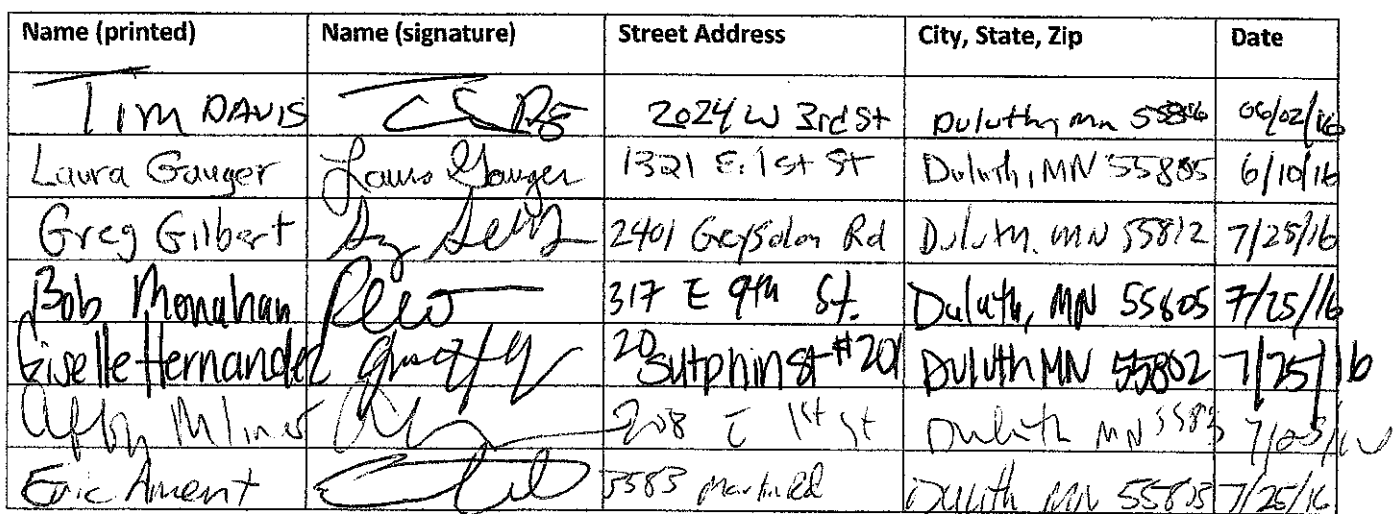 Name (printed) Name (signature) Street Address City, State, Zip Date
Tim DAVIS 2024 W 3rd St Duluth, mn 55806 06/02/16
Laura Gauger Laura Gauger 1321 E. 1st St Duluth, MN 55805 6/10/16
Greg Gilbert 2401 Greysolon Rd Duluth. MN 55812 7/25/16
Bob Monahan 317 E 9th St. Duluth, MN 55805 7/25/16
Giselle Hernandez 20 Sutphin St #201 Duluth MN 55802 7/25/16
208 E 1st St Duluth MN 7/25/16
Eric Ament 3583 Martin Rd Duluth MN 55803 7/25/16